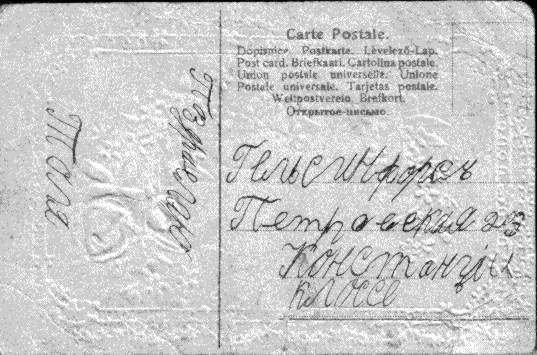 Carte Postale.
Dopisnice Postkarte. Levelező-Lap.
Post card. Briefkaart. Cartolina postale.
Union postale universelle. Unione
Postale universale. Tarjetas postale.
Weltpostverein Brefkort.
Открытое письмо.
Гельсинфорсъ
Петровская 23
Констанціи
Клосе
Поздравляю
Таля